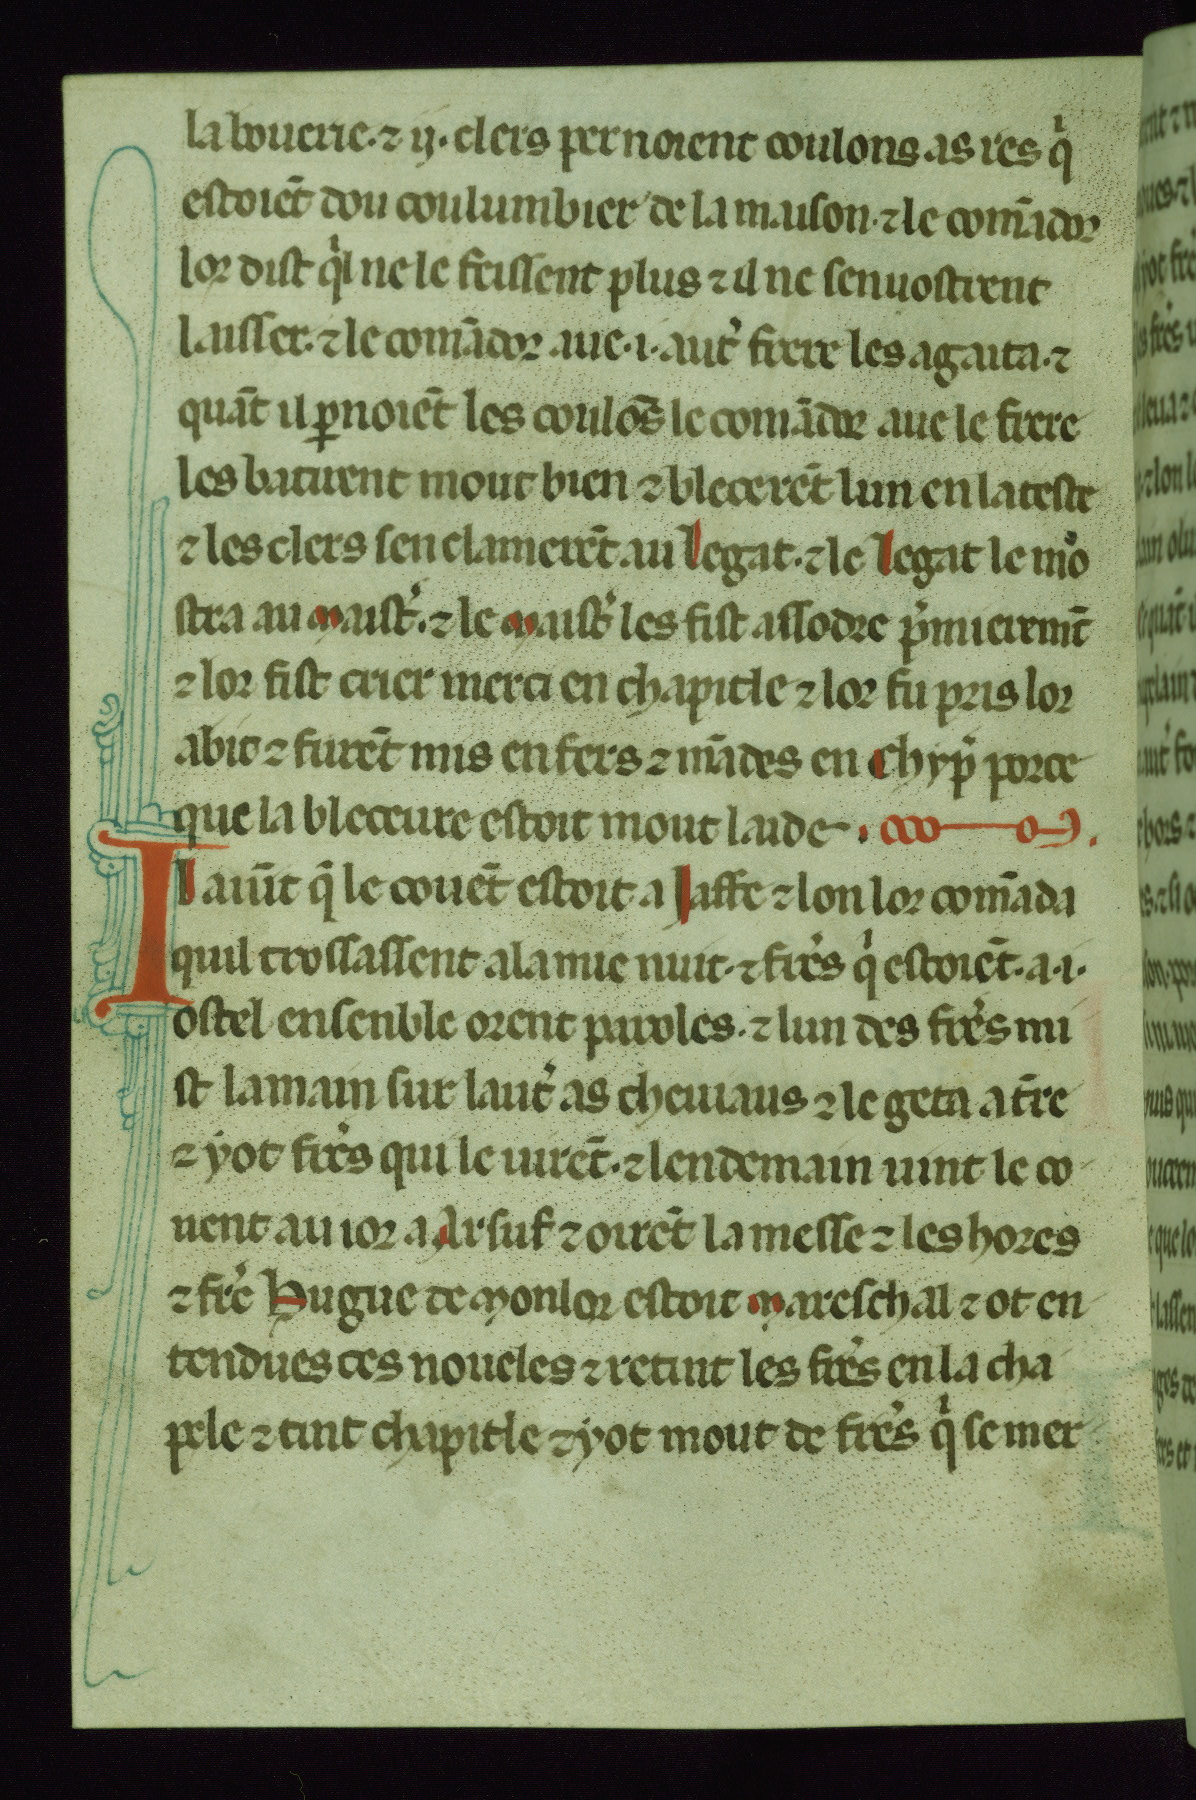 la bouerie · ⁊ ij · clers pernoient coulons as res qͥ
estoiēt dou coulumbier de la maison · ⁊ le comādor
lor dist qͥl ne le feissent plus ⁊ il ne sen uostrent
laisser · ⁊ le comādor aue · i · autͬ frere les agaita · ⁊
quāt il ꝑnoiēt les coulōs le comādor aue le frere
les batirent mout bien ⁊ blecerēt lun en la teste
⁊ les clers sen clamerēt au legat · ⁊ le legat le mō
stra au maistͬ · ⁊ le maistͬ les fist assodre pͥmieremt̄
⁊ lor fist crier merci en chapitle ⁊ lor fu pris lor
abit ⁊ furēt mis en fers ⁊ mādes en chypͬ porce
que la bleceure estoit mout laide ·
Il auīt qͥ le couēt estoit a Jaffe ⁊ lon lor comāda
quil trossassent a la mie nuit · ⁊ frēs qͥ estoiēt · a · i ·
ostel ensenble orent paroles · ⁊ lun des frēs mi
st la main sur lautͬ as cheuiaus ⁊ le geta a tr̄e
⁊ yot frēs qui le uirēt · ⁊ lendemain uint le co
uent au ior a Arsuf ⁊ oirēt la messe ⁊ les hores
⁊ frē Hugue de monlor estoit mareschal ⁊ ot en
tendues ces noueles ⁊ retint les frēs en la cha
pele ⁊ tint chapitle ⁊ yot mout de frēs qͥ se mer